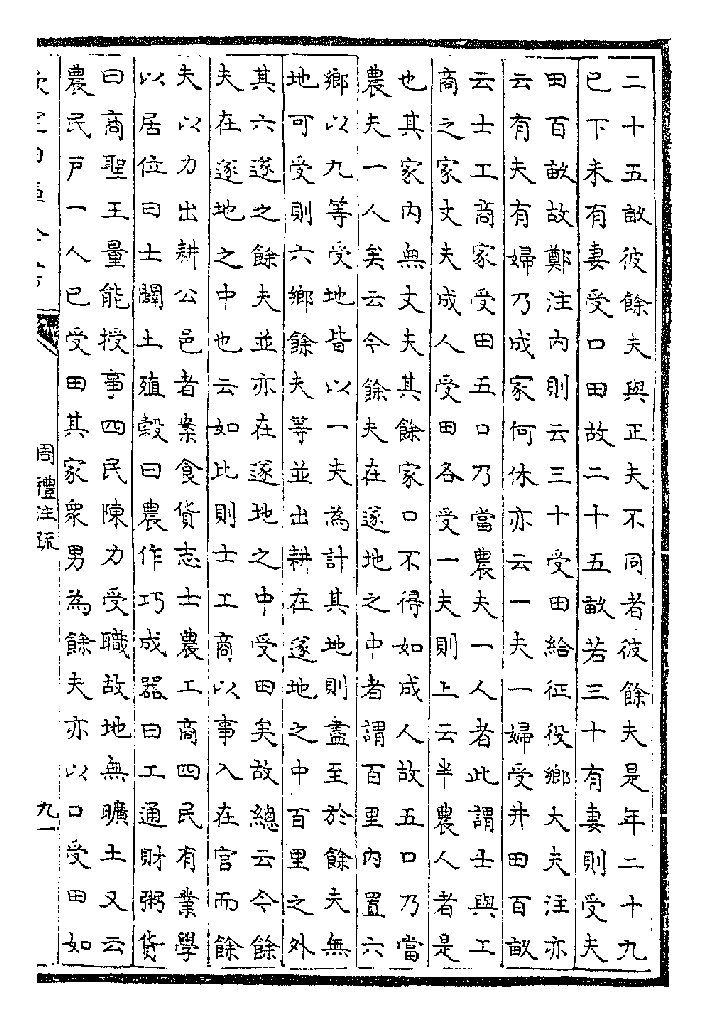 二十五畝彼餘夫與正夫不同者彼餘夫是年二十九
已下未有妻受口田故二十五畝若三十有妻則受夫
田百畝故鄭注內則云三十受田給征役鄉大夫注亦
云有夫有婦乃成家何休亦云一夫一婦受井田百畝
云士工商家受田五口乃當農夫一人者此謂士與工
商之家丈夫成人受田各受一夫則上云半農人者是
也其家內無丈夫其餘家口不得如成人故五口乃當
農夫一人矣云今餘夫在遂地之中者謂百里內置六
鄉以九等受地皆以一夫為計其地則盡至於餘夫無
地可受則六鄉餘夫等並出耕在遂地之中百里之外
其六遂之餘夫並亦在遂地之中受田矣故總云今餘
夫在遂地之中也云如此則士工商以事入在官而餘
夫以力出耕公邑者案食貨志士農工商四民有業學
以居位曰士闢土殖穀曰農作巧成器曰工通財粥貨
曰商聖王量能授事四民陳力受職故地無曠土又云
農民戶一人已受田其家衆男為餘夫亦以口受田如
周禮注疏
九一